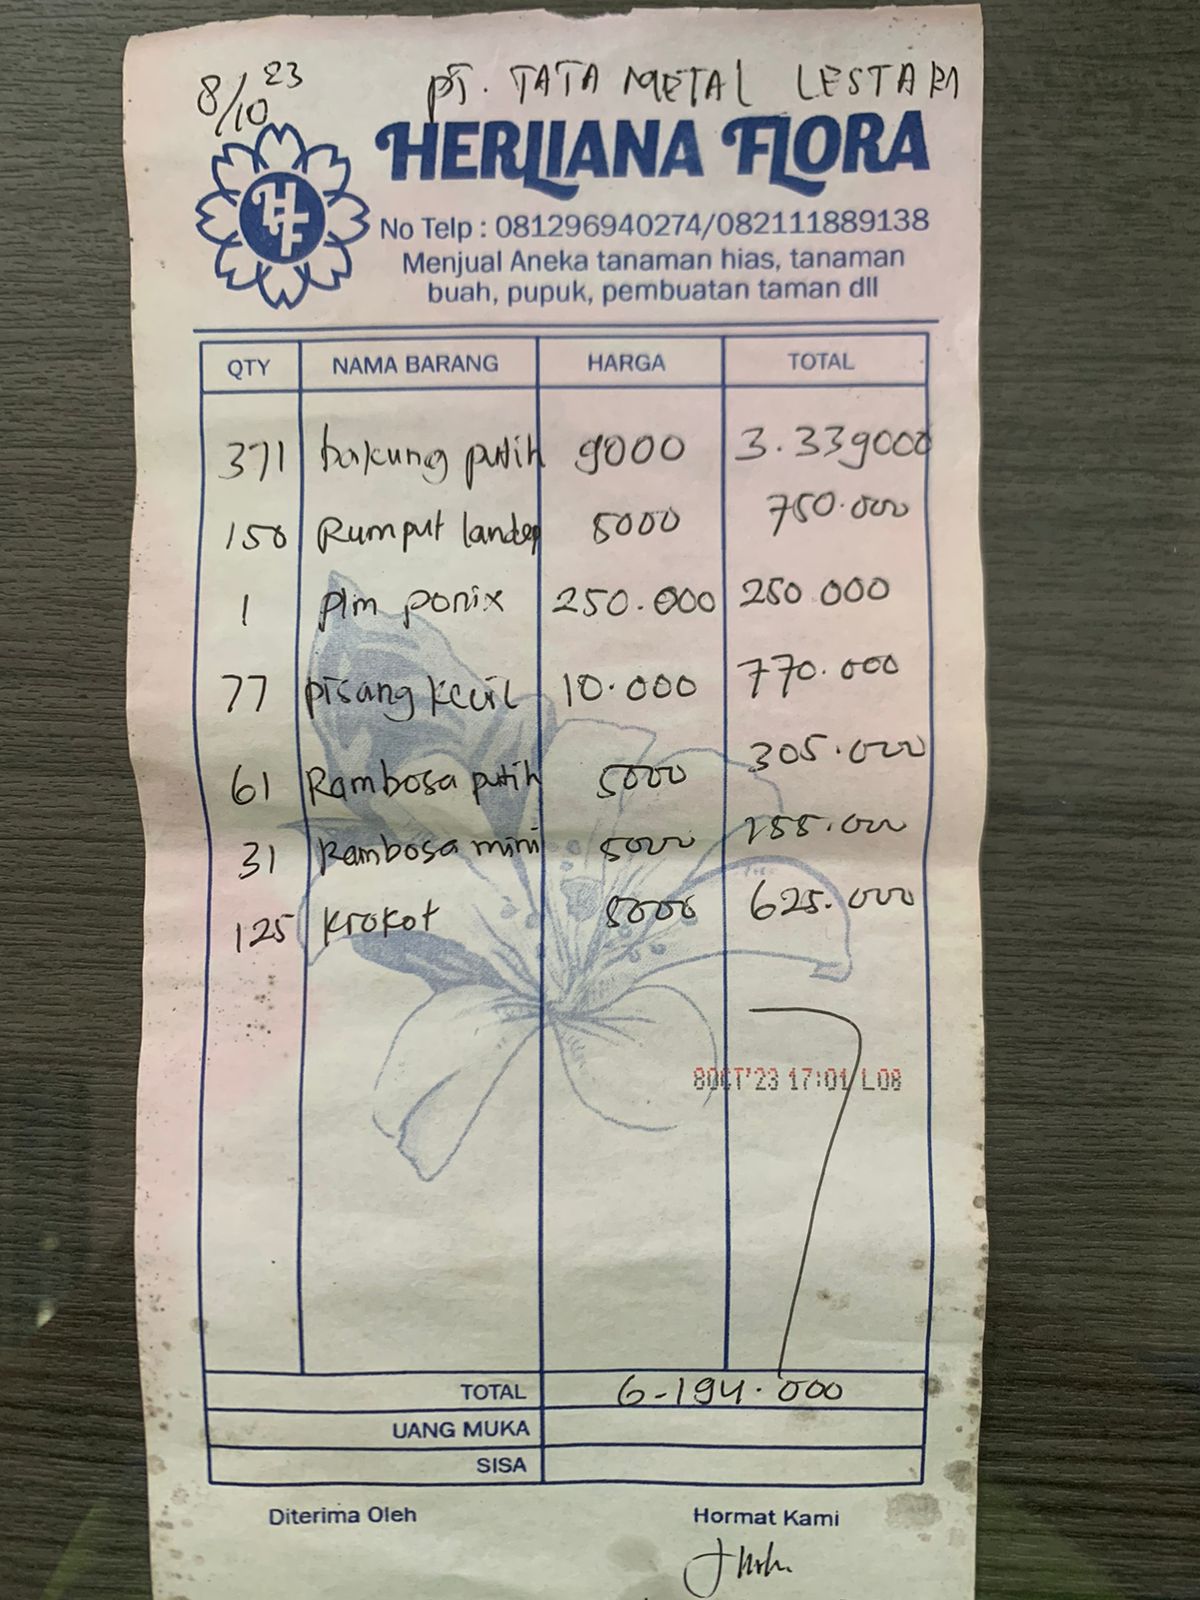 8/10 23
PT. TATA METAL LESTARI
HERLIANA FLORA
HF
No Telp : 081296940274/082111889138
Menjual Aneka tanaman hias, tanaman
buah, pupuk, pembuatan taman dll
QTY NAMA BARANG HARGA TOTAL
371 bakung putih 9000 3.339000
150 Rumput landep 5000 750.000
1 plm ponix 250.000 250 000
77 pisang kecil 10.000 770.000
61 Rambosa putih 5000 305.000
31 Rambosa mini 5000 155.000
125 krokot 5000 625.000
8OCT'23 17:01 L08
TOTAL 6-194.000
UANG MUKA
SISA
Diterima Oleh Hormat Kami